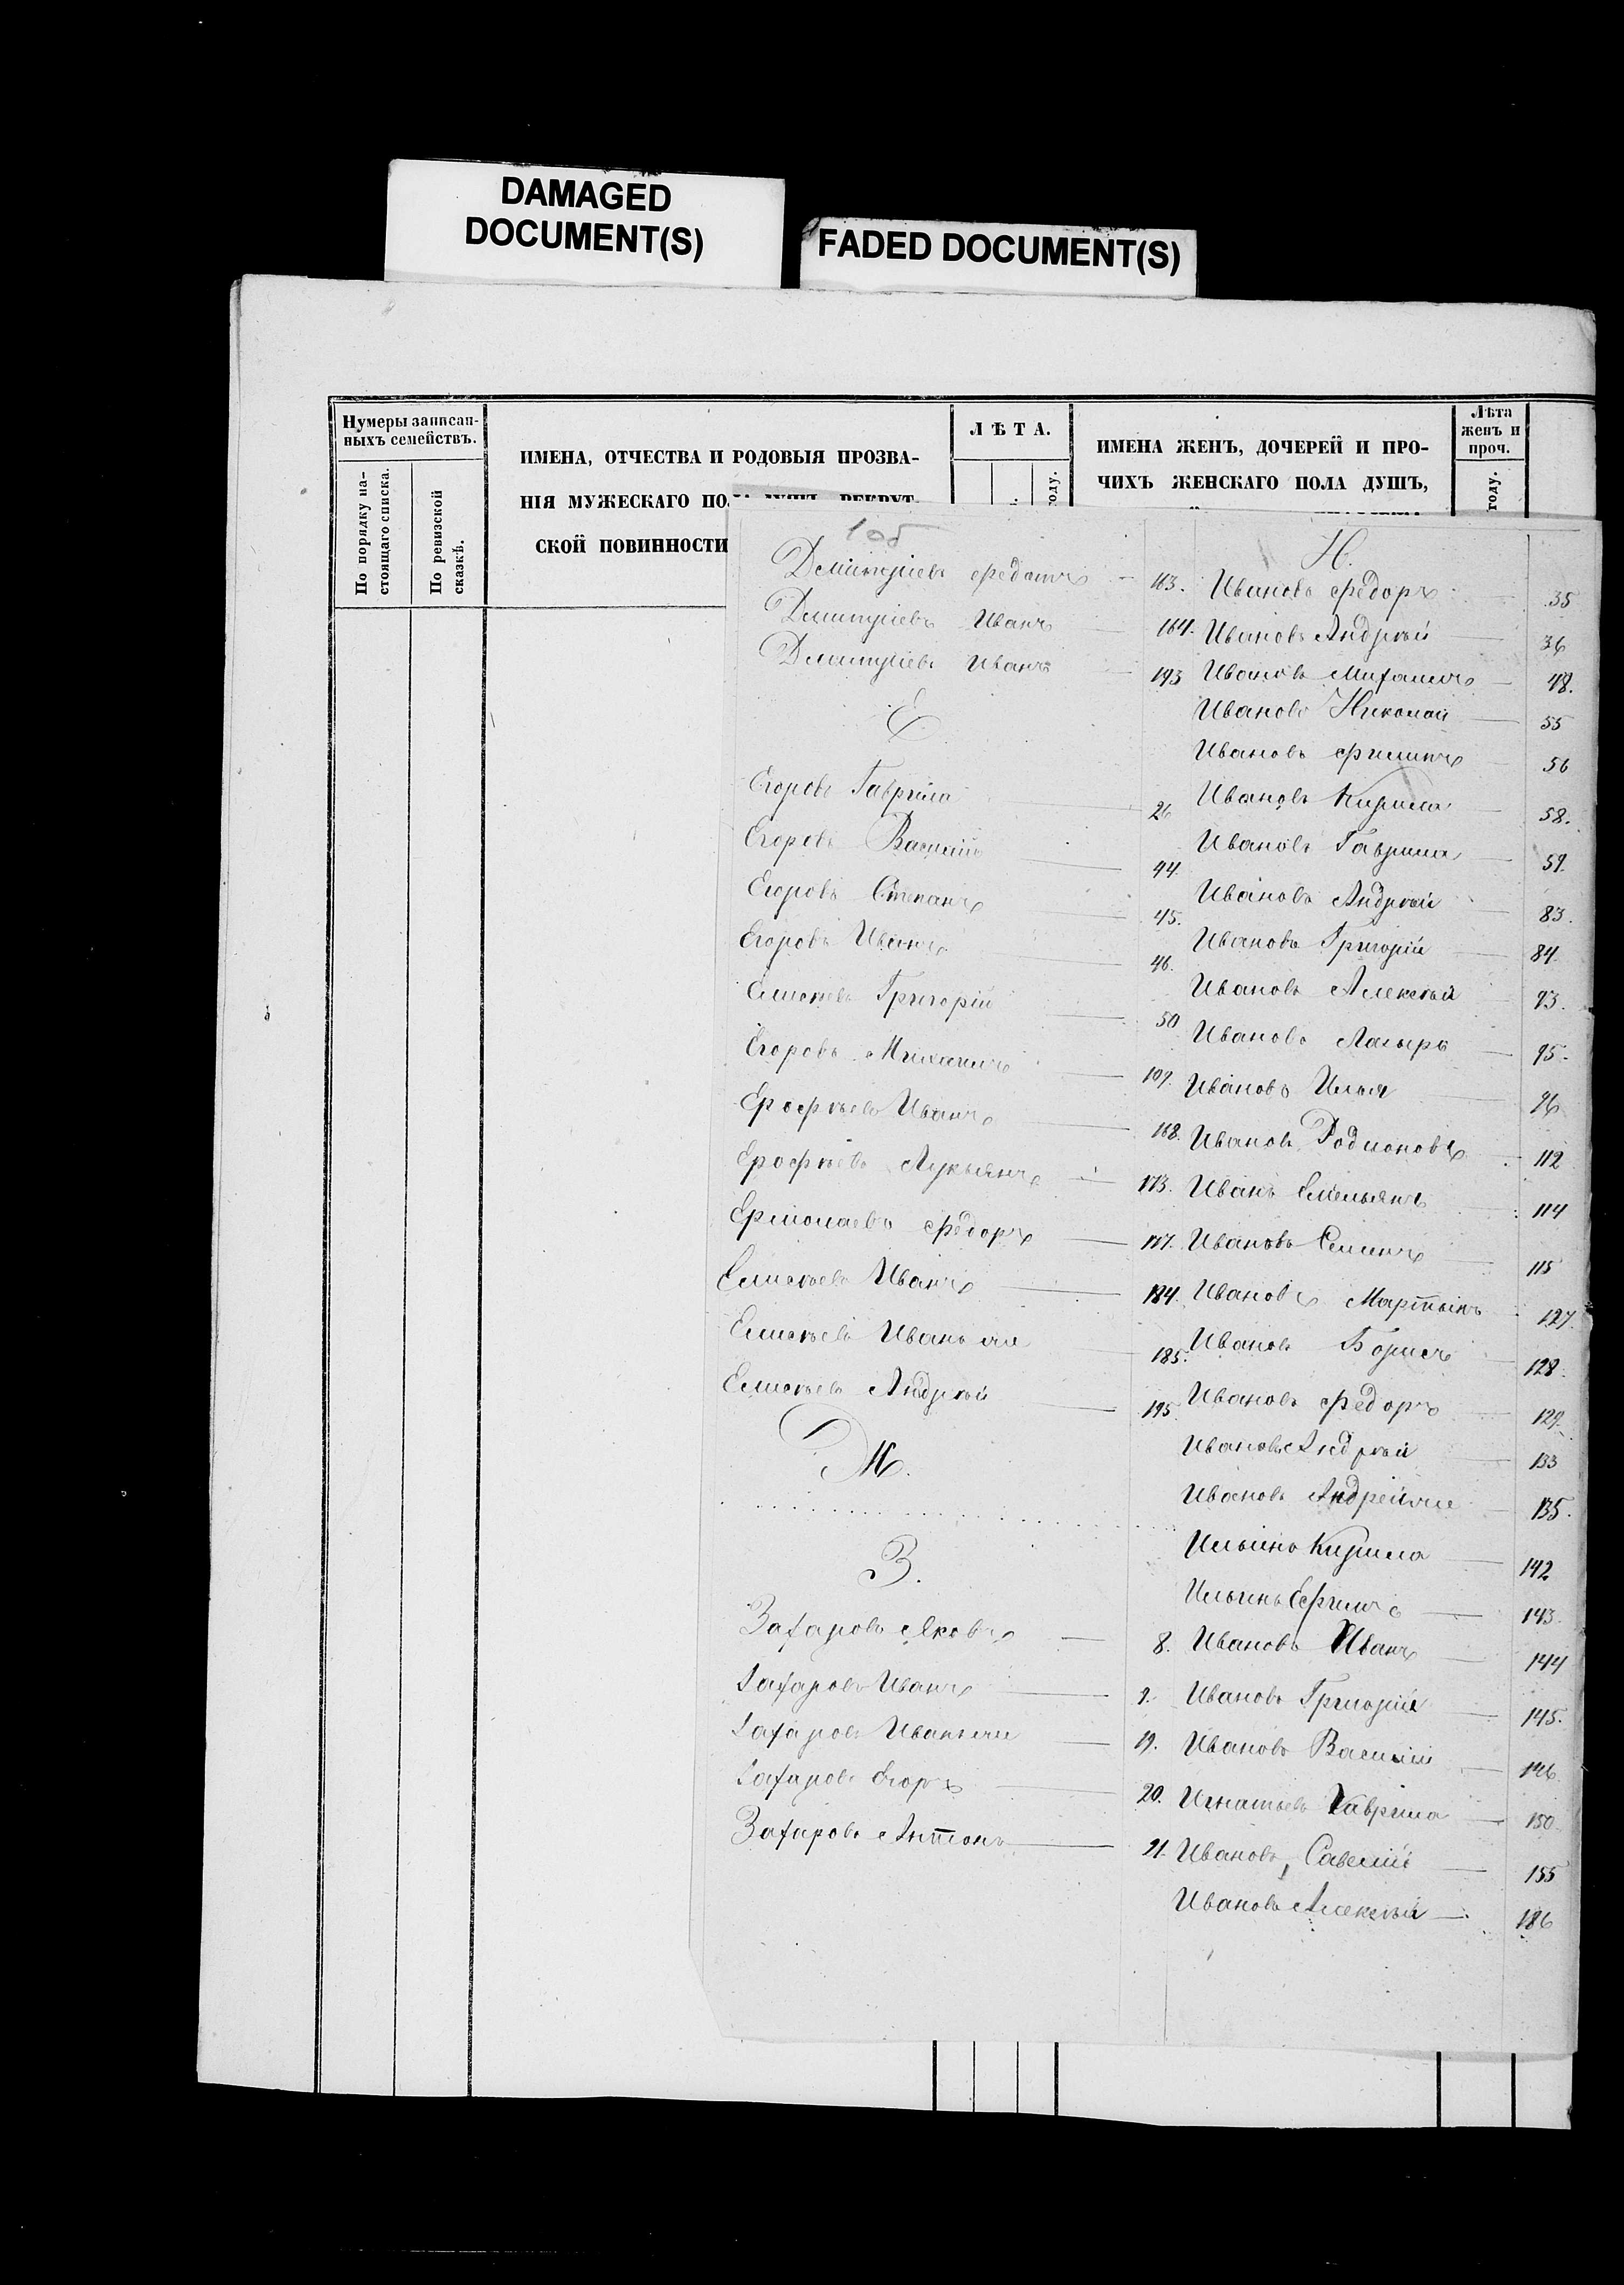 DAMAGED
DOCUMENT(S)
FADED DOCUMENT(S)
Нумеры записан-
ныхъ семействъ.
По порядку на-
стоящаго списка.
По ревизской
сказкѣ.
ИМЕНА, ОТЧЕСТВА И РОДОВЫЯ ПРОЗВА-
НІЯ МУЖЕСКАГО
СКОЙ ПОВИННОСТИ
ЛѢТА.
году.
ИМЕНА ЖЕНЪ, ДОЧЕРЕЙ И ПРО-
ЧИХЪ ЖЕНСКАГО ПОЛА ДУШЪ,
Лѣта
женъ и
проч.
году.
Дмитріевъ 163.
Дмитріевъ Иванъ 164.
Дмитріевъ Иванъ 193
Е
Егоровъ Гаврила 26
Егоровъ Василій 44.
Егоровъ Степанъ 45.
Егоровъ Иванъ 46.
Елисѣевъ Григорій 50
Егоровъ Михаилъ 109.
Ерофѣевъ Иванъ 168.
Ерофѣевъ Лукьянъ 173.
Ермолаевъ Ѳедоръ
Елисѣевъ Иванъ 184.
Елисѣевъ Иванъ 185.
Елисѣевъ Андрѣй 195.
Ж.
З.
Захаровъ Яковъ 8.
Захаровъ Иванъ 9.
Захаровъ Иванъ 19.
Захаровъ Егоръ 20.
Захаровъ Антонъ 21.
И.
Ивановъ Федоръ 35
Ивановъ Андрѣй 36
Ивановъ Михаилъ 48.
Ивановъ Николай 55
Ивановъ Филипъ 56
Ивановъ Кирила 58.
Ивановъ Гаврила 59.
Ивановъ Андрѣй 83.
Ивановъ Григорій 84.
Ивановъ Алексѣй 93.
Ивановъ Лазырь 95.
Ивановъ Илья 96
Иванов Родионовъ 112
Иванъ Емельянъ 114
Ивановъ Семинъ 115
Ивановъ Мартынъ 127.
Ивановъ Борисъ 128.
Ивановъ Федоръ 129.
Ивановъ Андрѣй 133
Ивановъ 135.
Ильинъ Кирила 142
Ильинъ Ефимъ 143.
Ивановъ Иванъ 144
Ивановъ Григорій 145.
Ивановъ Василій 146.
Игнатьевъ Гаврила 150.
Ивановъ, Савелій 155
Ивановъ Алексѣй 186